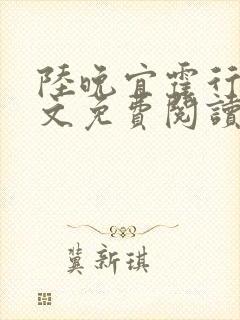 陸晚宜霆行
文免費閱讀
冀新琪